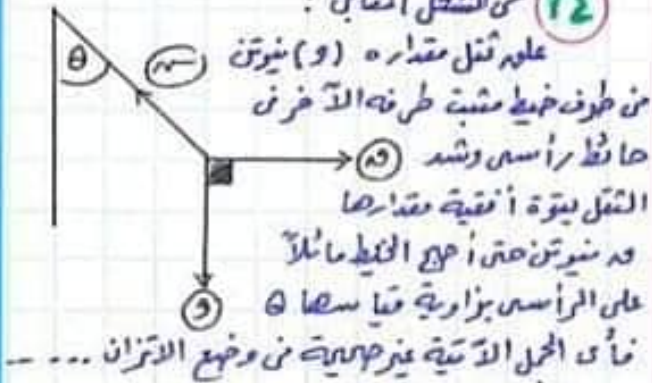 12 في الشكل المقابل :
θ
علق ثقل مقداره (و) نيوتن
من طرف خيط مثبت طرفه الآخر فى
حائط رأسى وشد
الثقل بقوة أفقية مقدارها
ق نيوتن حتى أصبح الخيط مائلاً
و
على الرأسى بزاوية قياسها θ
فأى الجمل الآتية غير صحيحة فى وضع الاتزان .....